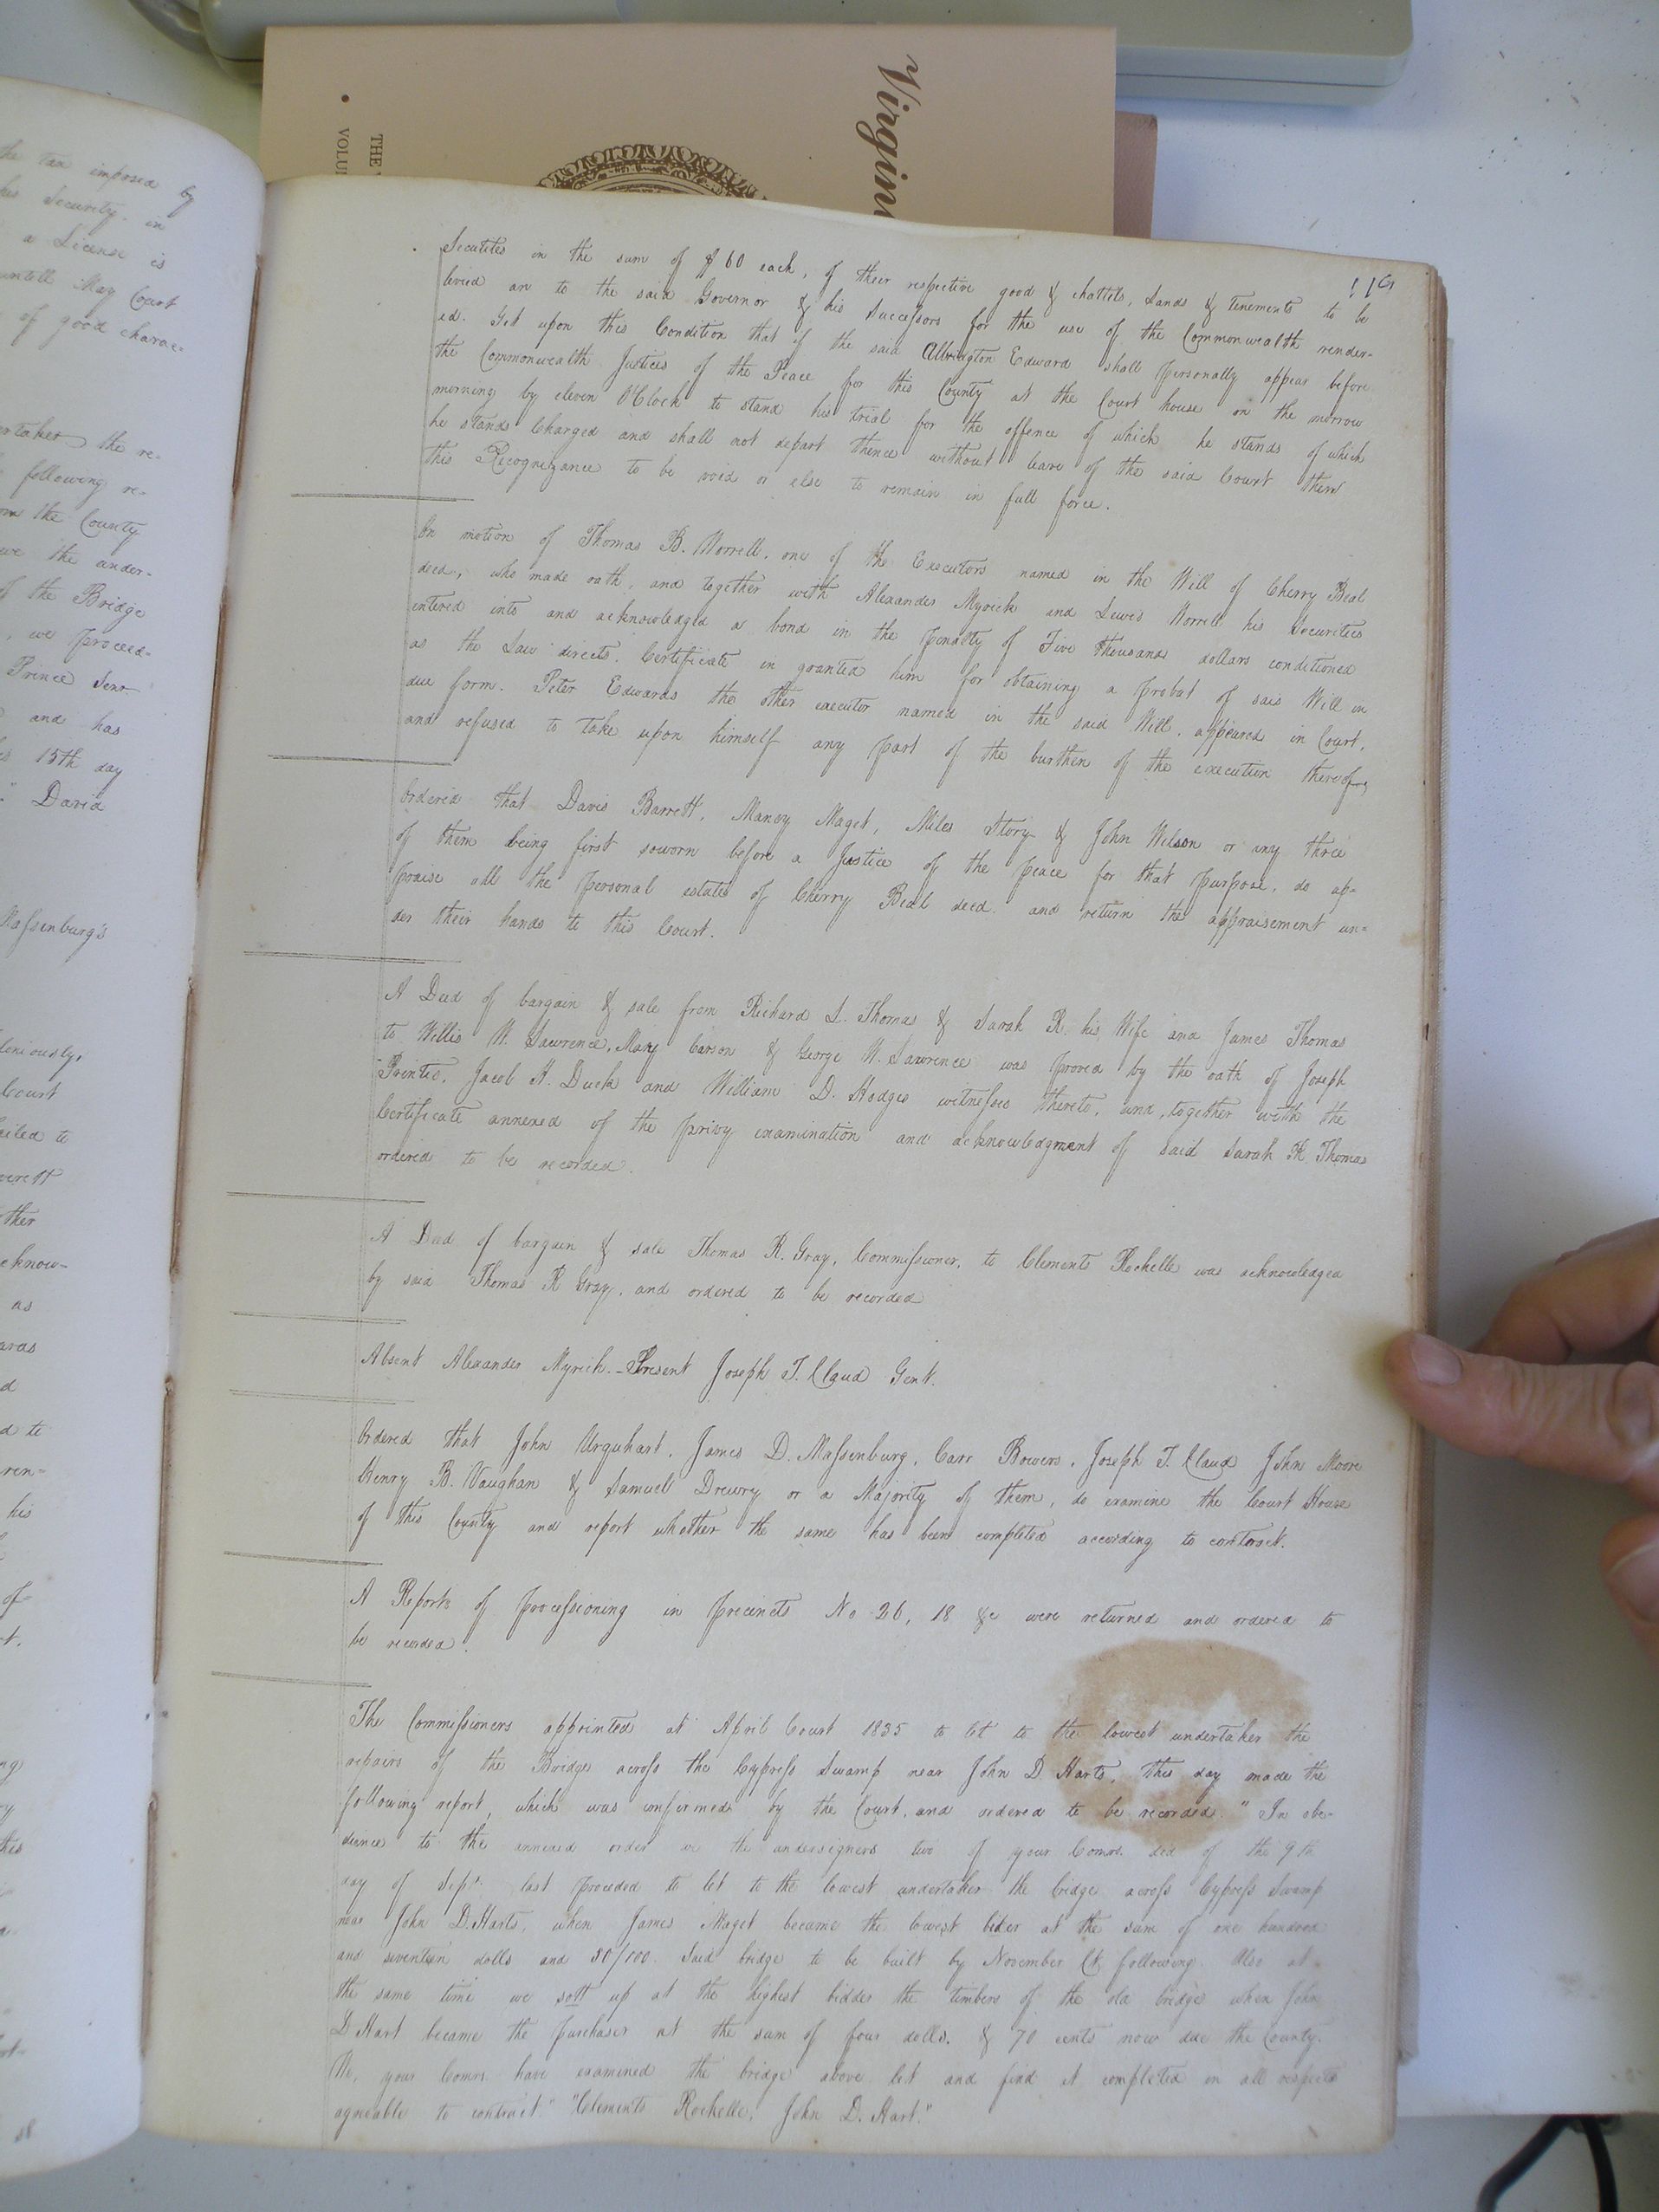 Virgin
THE
VOLU
the tax imposed by
his Security. in
a License is
untill May Court
of good charac-
the re-
following re-
the County
we the under-
of the Bridge
, we proceed-
Prince Senr
and has
15th day
" David
Massenburg's
Court
ther
cknow-
as
d to
his
of
119
Secutites in the sum of $60 each, of their respective good & chattels, Lands & tenements to be
levied an to the said Governor & his Successors for the use of the Commonwealth render-
ed. Yet upon this Condition that if the said Albrington Edward shall personally appear before
the Commonwealth Justices of the Peace for this County at the Court house on the morrow
morning by eleven O'Clock to stand his trial for the offence of which he stands of which
he stands Charged and shall not depart thence without leave of the said Court then
this Recognizance to be void or else to remain in full force.
On motion of Thomas B. Worrell, one of the Executors named in the Will of Cherry Beal
decd, who made oath, and together with Alexander Myrick and Lewis Worrell his Securities
entered into and acknowledged a bond in the penalty of Five thousand dollars conditioned
as the Law directs. Certificate in granted him for obtaining a probat of said Will in
due form. Peter Edwards the other executor named in the said Will, appeared in Court,
and refused to take upon himself any part of the burthen of the execution thereof
Ordered that Davis Barrett, Mancy Maget, Miles Story & John Wilson or any three
of them being first soworn before a Justice of the peace for that purpose, do ap-
praise all the personal estate of Cherry Beal decd. and return the appraisement un-
der their hands to this Court.
A Deed of bargain & sale from Richard L. Thomas & Sarah R. his Wife and James Thomas
to Willis W. Lawrence, Mary Carson & George W. Lawrence was proved by the oath of Joseph
Prentis, Jacob H. Duck and William D. Hodges witnesses thereto, and, together with the
Certificate annexed of the privy examination and acknowledgment of said Sarah R Thomas
ordered to be recorded.
A Deed of bargain & sale Thomas R. Gray, Commissioner, to Clements Rochelle was acknowledged
by said Thomas R Gray, and ordered to be recorded
Absent Alexander Myrick. - Present Joseph T. Claud Gent.
Ordered that John Urquhart, James D. Massenburg, Carr Bowers, Joseph T. Claud John Moore
Henry B. Vaughan & Samuel Drewry or a Majority of them, do examine the Court House
of this County and report whether the same has been completed according to contract.
A Reports of processioning in precincts No 26, 18 &c were returned and ordered to
be recorded.
The Commissioners appointed at April Court 1835 to let to the lowest undertaker the
repairs of the Bridge across the Cypress Swamp near John D. Harts, this day made the
following report, which was confirmed by the Court, and ordered to be recorded. "In obe-
dience to the annexed order we the undersigners two of your Comrs. did of the 9th
day of Sept. last proceded to let to the lowest undertaker the bridge across Cypress Swamp
near John D. Harts, when James Maget became the lowest bider at the sum of one hundred
and seventeen dolls and 50/100. Said bridge to be built by November Ct. following. Also at
the same time we sott up at the highest bidder the timbers of the old bridge when John
D Hart became the purchaser at the sum of four dolls. & 70 cents now due the County.
We, your Comrs. have examined the bridge above let and find it completed in all respects
agreeable to contract." "Clements Rochelle, John D. Hart."